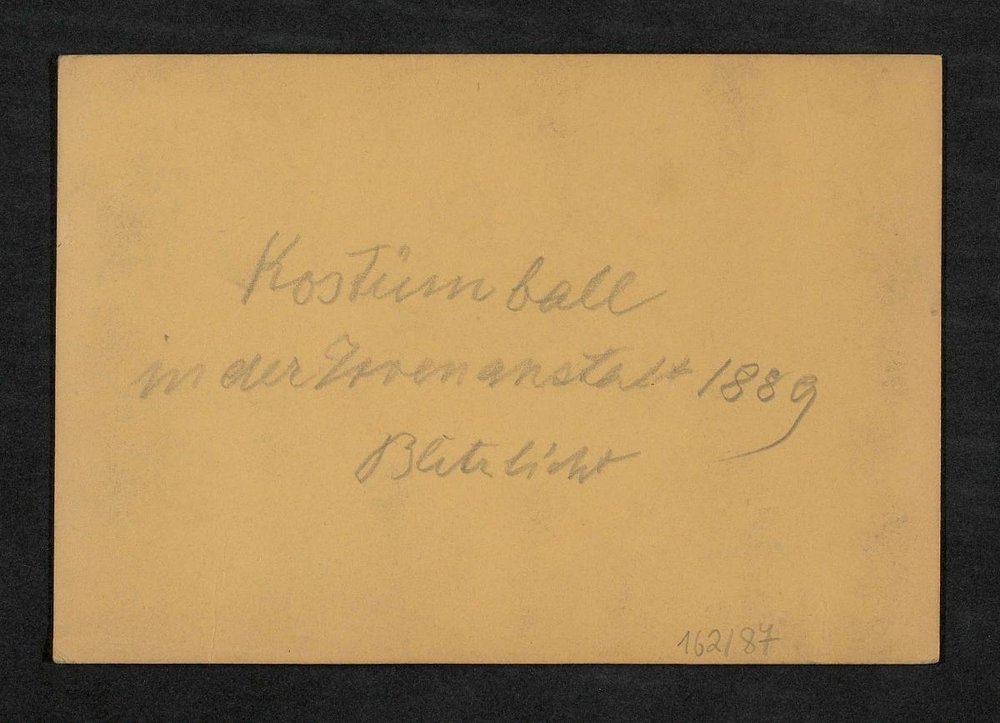 Kostüm ball
in der Irrenanstalt 1889
Blitzlicht
162/87